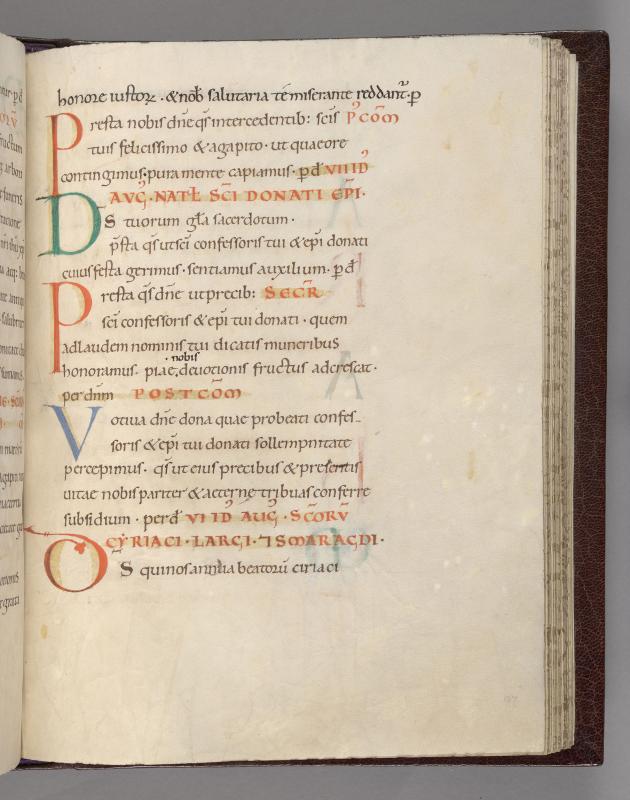 honore iustoꝝ · & nob̄ salutaria te miserante reddant̄ · ꝑ
Presta nobis dn̄e qs̄ intercedentib: scīs P̉ COM̄
tuis felicissimo & agapito · ut quae ore
contingimus · pura mente capiamus · ꝑ d̄ VIII ID
AUG̉ · NATL̄ SC̄I DONATI EP̄I ·
DS̄ tuorum gl̄a sacerdotum ·
p̄sta qs̄ ut sc̄i confessoris tui & ep̄i donati
cuius festa gerimus · sentiamus auxilium · ꝑ d̄
Presta qs̄ dn̄e ut precib: SECR̄
sc̄i confessoris & ep̄i tui donati · quem
ad laudem nominis tui dicatis muneribus
honoramus · piae nobis devotionis fructus adcrescat ·
per dn̄m POST COM̄
Votiva dn̄e dona quae pro beati confes-
soris & ep̄i tui donati sollempnitate
percepimus · qs̄ ut eius precibus & presentis
vitae nobis pariter & aeterne tribuas conferre
subsidium · per d̄ VI ID AUG̉ · SC̄ORV̄
CYRIACI · LARGI · ⁊ SMARAGDI ·
OS̄ qui nos annua beatorū ciriaci